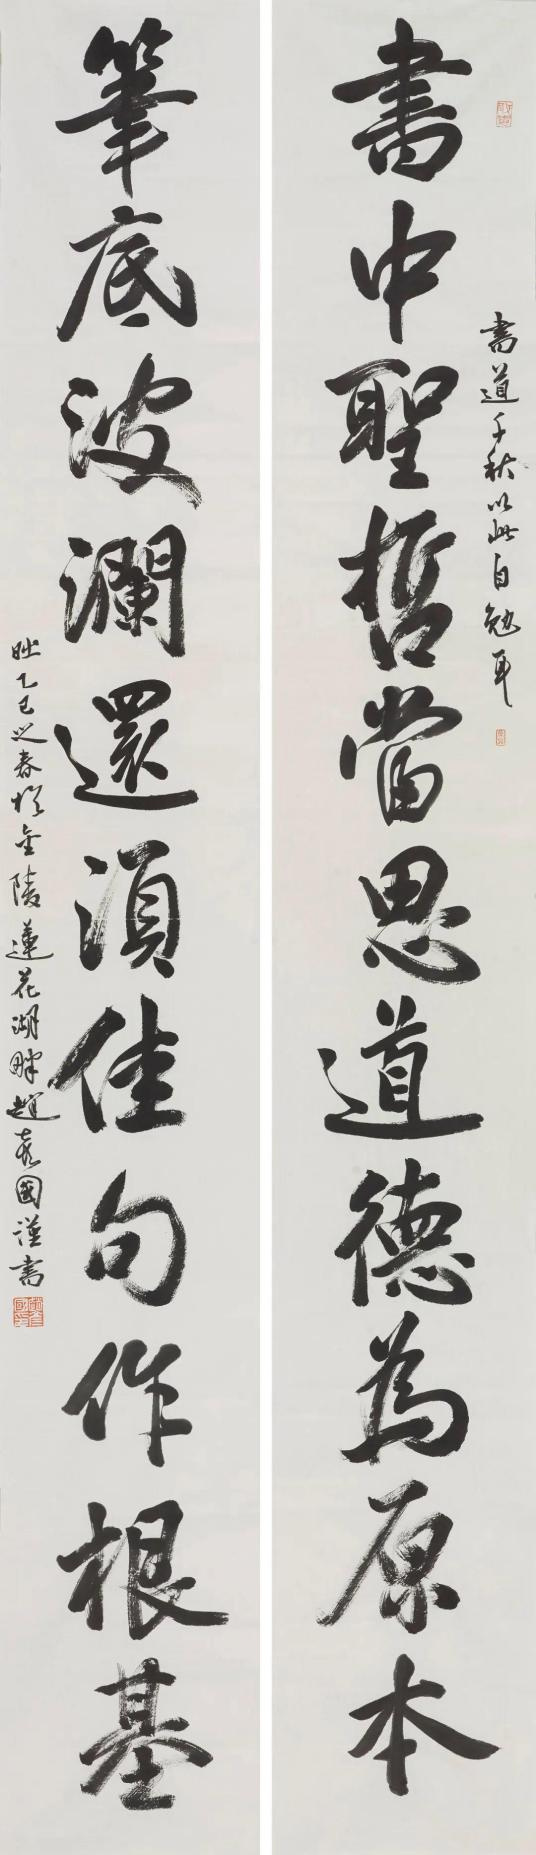 書中聖哲當思道德為原本
書道千秋以此自勉耳
筆底波瀾還須佳句作根基
乙巳之春於金陵蓮花湖畔趙 國謹書